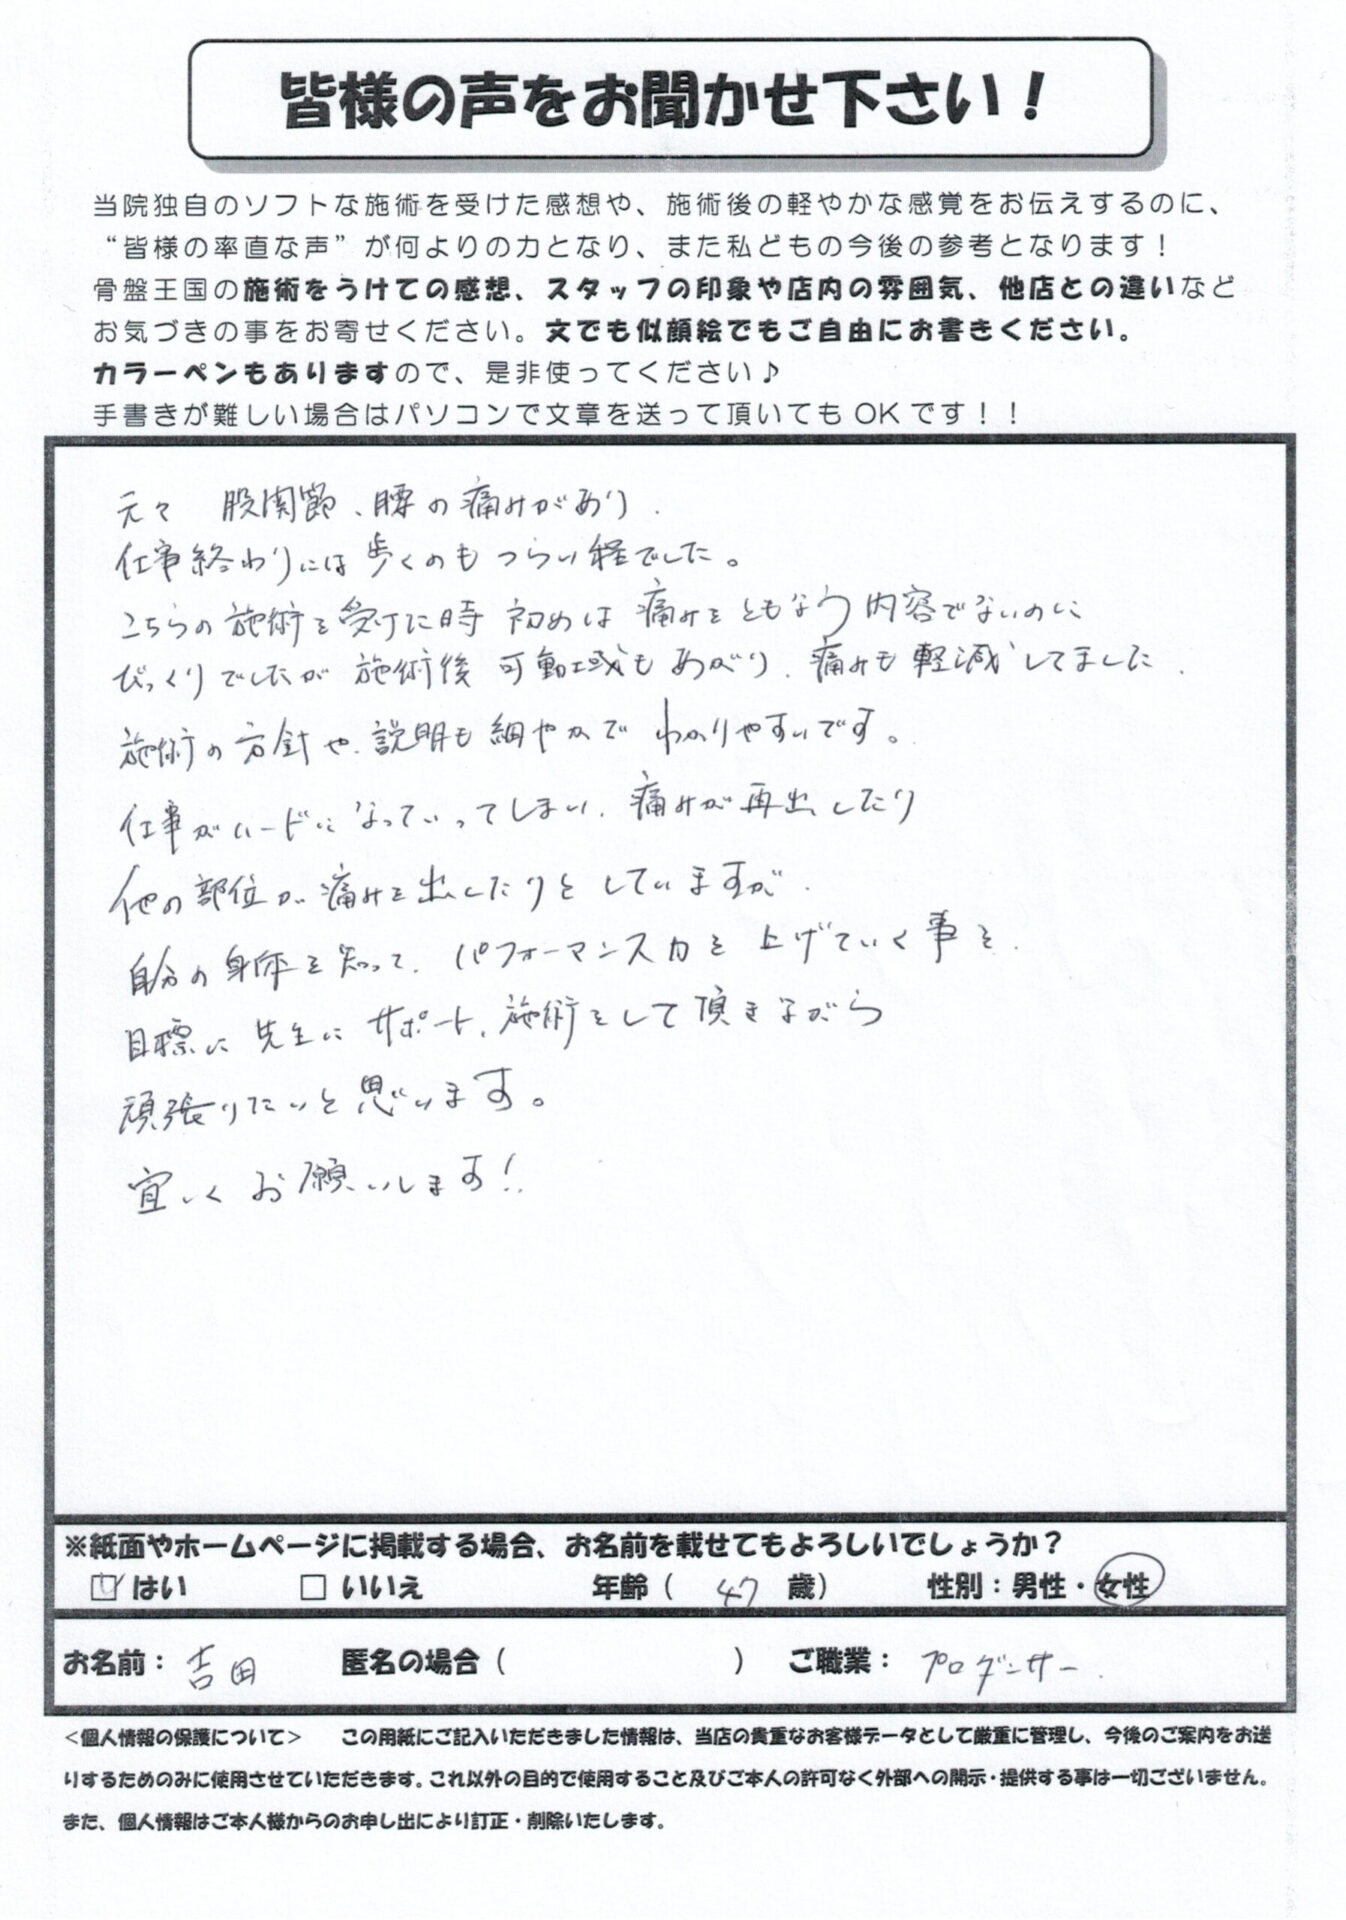 皆様の声をお聞かせ下さい！
当院独自のソフトな施術を受けた感想や、施術後の軽やかな感覚をお伝えするのに、
“皆様の率直な声”が何よりの力となり、また私どもの今後の参考となります！
骨盤王国の施術をうけての感想、スタッフの印象や店内の雰囲気、他店との違いなど
お気づきの事をお寄せください。文でも似顔絵でもご自由にお書きください。
カラーペンもありますので、是非使ってください♪
手書きが難しい場合はパソコンで文章を送って頂いてもOKです！！
元々 股関節、腰の痛みがあり、
仕事終わりには歩くのもつらい程でした。
こちらの施術を受けた時 初めは 痛みをともなう内容でないのに
びっくりでしたが 施術後 可動域もあがり、痛みも軽減してました、
施術の方針や、説明も細やかで わかりやすいです。
仕事がハードになっていってしまい、痛みが再出したり
他の部位が痛みを出したりと していますが、
自分の身体を知って、パフォーマンス力を 上げていく事を、
目標に 先生に サポート、施術をして頂きながら
頑張りたいと思います。
宜しくお願いします！
※紙面やホームページに掲載する場合、お名前を載せてもよろしいでしょうか？
☑ はい □ いいえ 年齢（ 47 歳） 性別：男性・女性
お名前： 吉田 匿名の場合（ ） ご職業： プロダンサー
＜個人情報の保護について＞ この用紙にご記入いただきました情報は、当店の貴重なお客様データとして厳重に管理し、今後のご案内をお送
りするためのみに使用させていただきます。これ以外の目的で使用すること及びご本人の許可なく外部への開示・提供する事は一切ございません。
また、個人情報はご本人様からのお申し出により訂正・削除いたします。